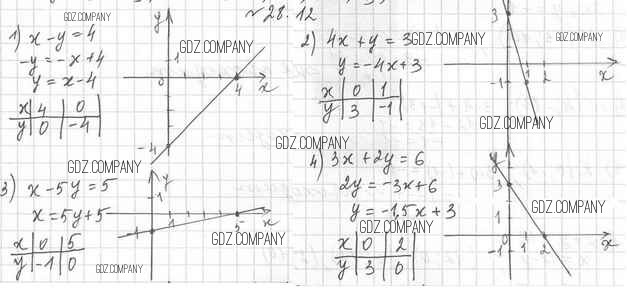 №28.12
1) x - y = 4
-y = -x + 4
y = x - 4
x 4 0
y 0 -4
y
1
0
4
x
-4
2) 4x + y = 3
y = -4x + 3
x 0 1
y 3 -1
3
-1
1 2
x
3) x - 5y = 5
x = 5y + 5
x 0 5
y -1 0
y
1
-1
1
5
x
4) 3x + 2y = 6
2y = -3x + 6
y = -1,5x + 3
x 0 2
y 3 0
y
3
1
0
1 2
x
-1
GDZ.COMPANY
GDZ.COMPANY
GDZ.COMPANY
GDZ.COMPANY
GDZ.COMPANY
GDZ.COMPANY
GDZ.COMPANY
GDZ.COMPANY
GDZ.COMPANY
GDZ.COMPANY